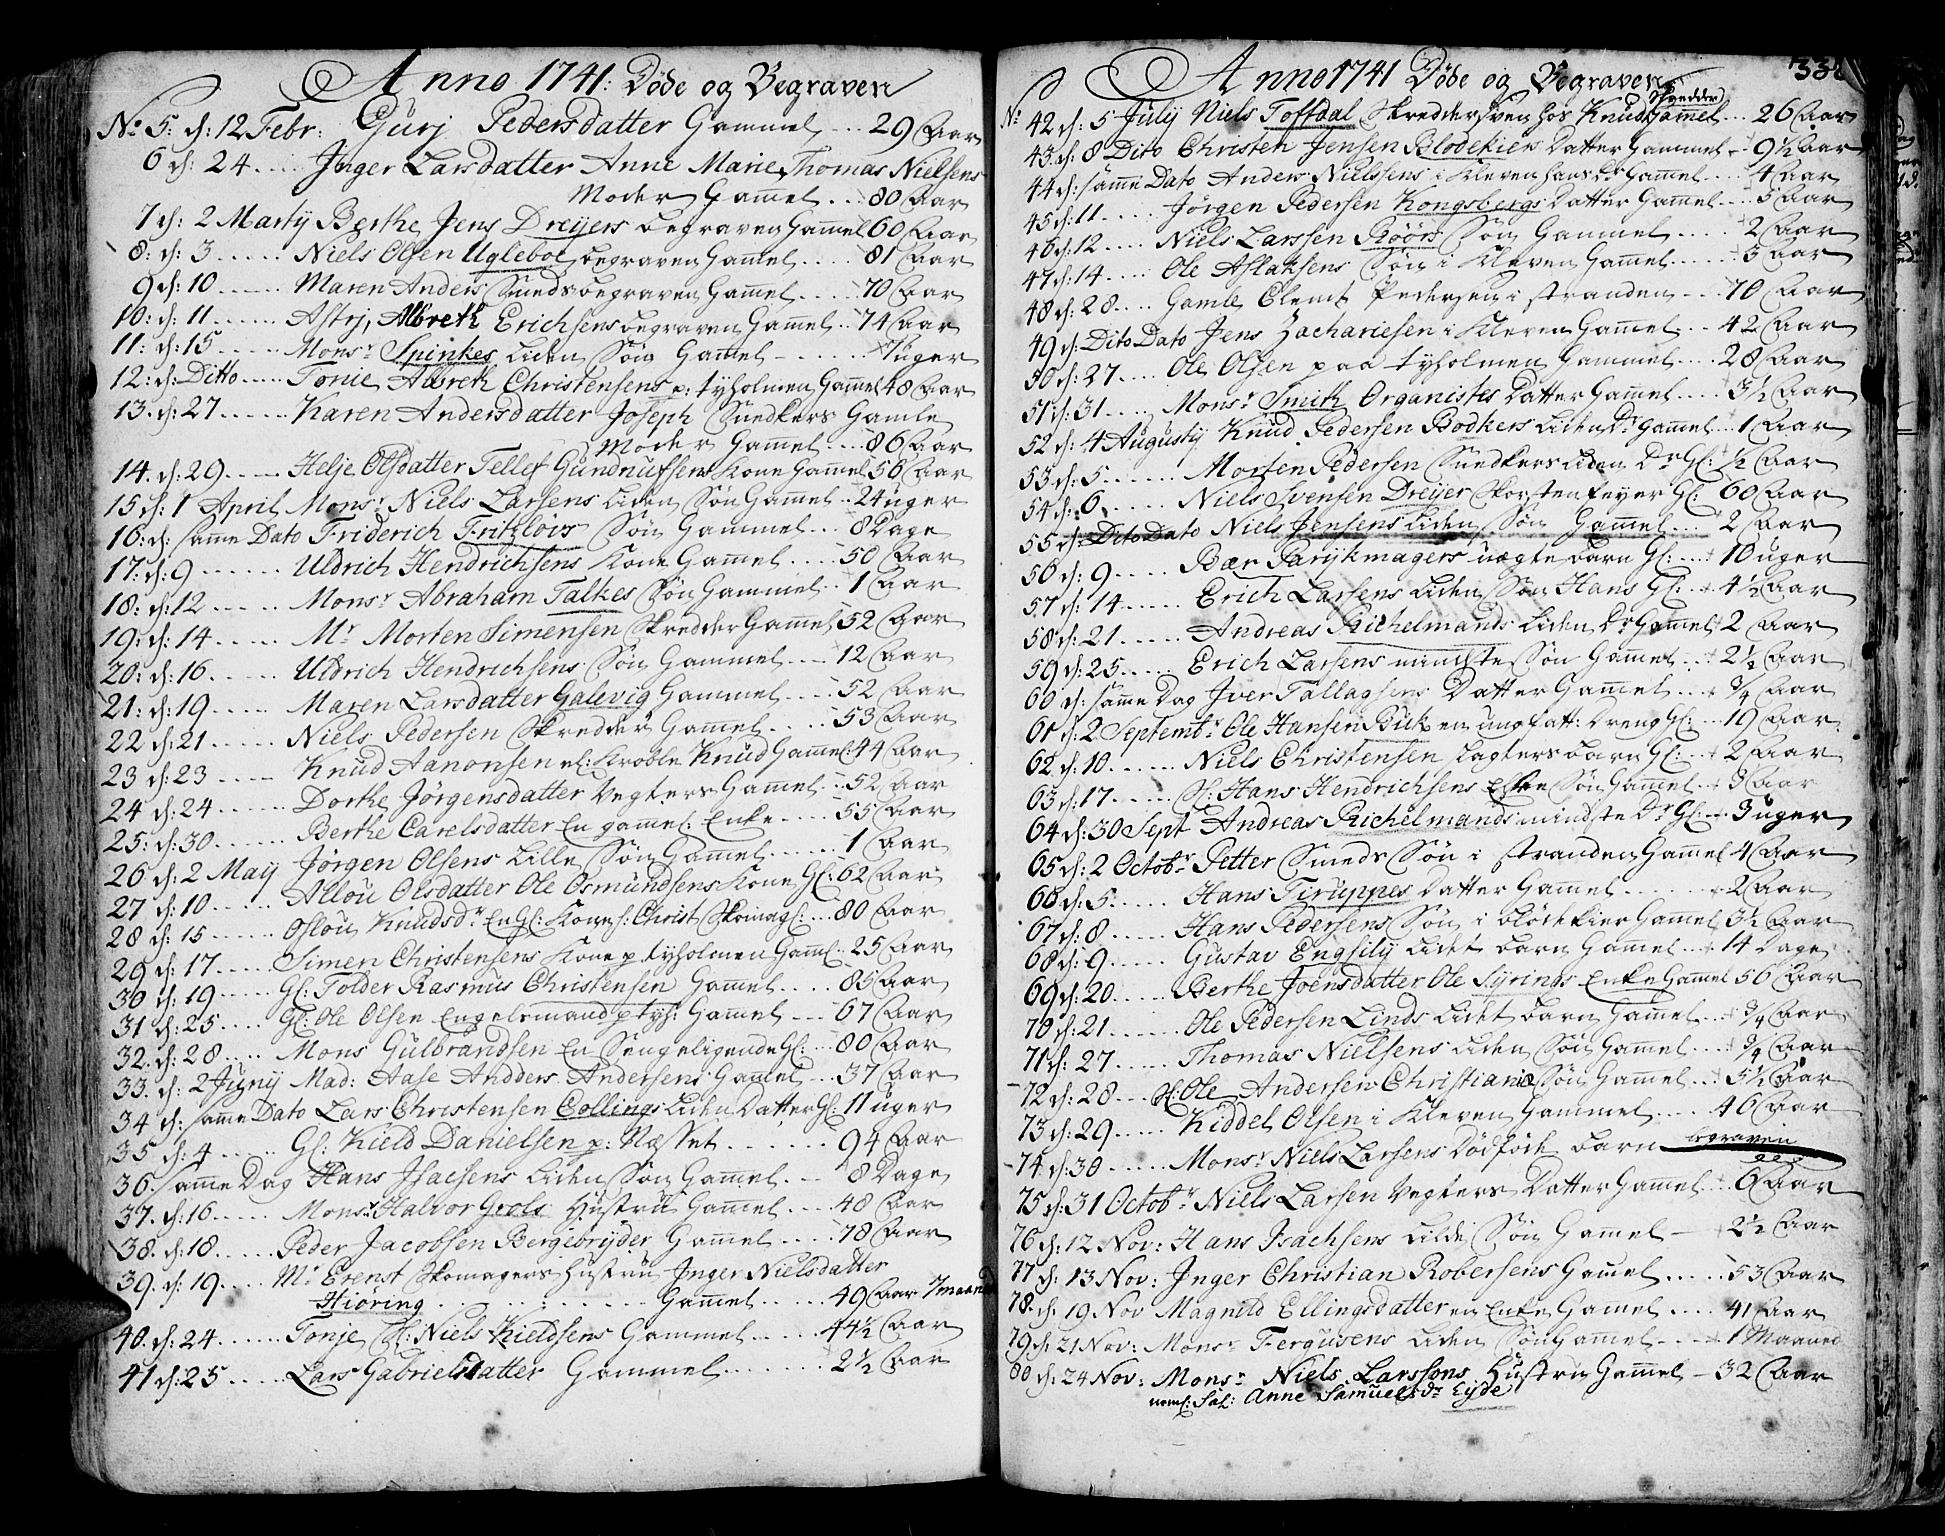 Anno 1741: Døde og Begraven
No 5: d: 12 Febr: Gurj Pedersdatter Gammel --- 29 Aar
6 d: 24 .... Inger Larsdatter Anne Marie, Thomas Nielsens
Moder Gamel ... 80 Aar
7 d: 2 Martij Berthe Jens Dreyers begraven Gamel 60 Aar
8: d: 3 ..... Niels Olsen Uglebol, begraven Gamel .... 81 Aar
9 d: 10 ....... Maren Anders Smeds begraven Gamel ..... 70 Aar
10: d: 11 ...... Astrj, Albreth Erichsens begraven Gamel .. 74 Aar
11: d: 15 ...... Monsr Spinkes Liden Søn Gamel - ...... 7 uger
12: d: Ditto ..... Tonie Albreth Christensens p: tyholmen Gamel 48 Aar
13. d: 27 ....... Karen Andersdatter Joseph Snedkers Gamle
Moder Gamel ... 86 Aar
14. d: 29 ..... Helje Olsdatter Tellef Gundnufsens Kone Gamel 56 Aar
15 d: 1 April Monsr Niels Larsens Liden Søn Gamel .. 24 uger
16: d: samme Dato Friderich Fritzlovs Søn Gamel ... 8 Dage
17: d: 9 ....... Uldrich Hendrichsens Kone Gamel .... 50 Aar
18: d: 12 ..... Monsr Abraham Falkes Søn Gammel .. 1 Aar
19: d: 14 ..... Mr Morten Simensen Skredder Gamel 52 Aar
20: d: 16 ...... Uldrich Hendrichsens Søn Gammel ... 12 Aar
21: d: 19 ..... Maren Larsdatter Galevig Gammel .... 52 Aar
22 d: 21 ...... Niels Pedersen Skredder Gamel .... 53 Aar
23 d: 23 .... Knud Aanonsen el: Kroble Knud Gamel: 44 Aar
24 d: 24 ....... Dorthe Jørgensdatter Vegters Gamel .. 52 Aar
25: d: 30 ...... Berthe Carelsdatter En gamel: Enke .... 55 Aar
26 d: 2 May Jørgen Olsens Lille Søn Gamel ...... 1 Aar
27 d: 10 ...... Allou Olsdatter Ole Osmundsens Kone Gl: 62 Aar
28 d: 15 ....... Oslou Knudsdr En Gl: Kone s: Christ Skomag: .... 80 Aar
29 d: 17 ..... Simen Christensens Kone p tyholmen Gaml: 25 Aar
30 d: 19 ...... Gl: Tolder Rasmus Christensen Gamel ..... 85 Aar
31 d: 25 ..... Gl: Ole Olsen Engelsmand p tyh: Gamel ... 67 Aar
32: d: 28 ..... Mons Gulbrandsen En Sengeligende Gl: ... 80 Aar
33. d: 2 Juny Mad: Aase Andders Andersens Gamel ... 37 Aar
34 d: samme Dato Lars Christensen Collings Liden Datter Gl: 11 uger
35 d: 4 ..... Gl: Kield Danielsen p: Næsset ....... 94 Aar
36. samme Dag Hans Isacsens Liden Søn Gamel. .. 8 Dage
37. d: 16 ..... Monsr Halvor Grols Hustru Gamel .... 48 Aar
38. d: 18 ..... Peder Jacobsen Bergebryder Gamel .... 78 Aar
39. d: 19 .... Mr Erenst Skomagers Hustru Inger Nielsdatter
Hiøring ........ Gamel ...... 49 Aar 7 maand
40. d: 24 ...... Tonje Sl: Niels Kieldsens Gammel ..... 44½ Aar
41 d: 25 ..... Lars Gabrielsdatter Gammel ...... 2½ Aar
Anno 1741 Døde og Begraven
No 42 d: 5 July Niels Toftdal Skreddersven hos Knud Skredder Gamel ... 26 Aar
43. d: 8 Dito Christen Jensen Blodekiers Datter Gammel - 9½ Aar
44 d: samme Dato Anders Nielssens i Kleven hans Dr Gamel .... 4 Aar
45 d: 11 ..... Jørgen Pedersen Kongsbergs Datter Gamel ... 5 Aar
46 d: 12 .... Niels Larssen Røørs Søn Gamel ..... 2 Aar
47 d: 14 ..... Ole Aslaksens Søn i Kleven Gamel ..... 3 Aar
48 d: 28 .... Gamle Clemt Pedersen i stranden --- 70 Aar
49 d: Dito Dato Jens Zachariesen i Kleven Gamel ... 42 Aar
50 d: 27 .... Ole Olsen paa tyholmen Gammel .... 28 Aar
51 d: 31 ..... Monsr Smith Organistes Datter Gamel .... 3½ Aar
52 d: 4 Augustij Knud Pedersen Bodkers Liden Dr Gamel .. 1 Aar
53 d: 5 ...... Morten Pedersen Snedkers Liden Dr Gl: ½ Aar
54 d: 6 ..... Niels Svensen Dreyer Skorstenfeyer Gl: 60 Aar
55 d: Dito Dato Niels Jensens Liden Søn Gamel ... 2 Aar
56 d: 9 ..... Bær Parykmagers uægte barn Gl: ... 10 uger
57 d: 14 ..... Erich Larsens Liden Søn Hans Gl: .. 4½ Aar
58 d: 21 ...... Andreas Richelmands Liden Dr Gamel 2 Aar
59 d: 25 ..... Erich Larsens mindste Søn Gamel .. 2½ Aar
60 d: samme Dag Iver Tallagsens Datter Gamel ... ¾ Aar
61 d: 2 Septembr Ole Hansen Bick en ung fatt: Dreng Gl: ... 19 Aar
62 d: 10 ....... Niels Christensen slagters barn Gl: ... 2 Aar
63 d: 17 ...... Sl: Hans Hendrichsens Eske Søn Gamel .. 3 Aar
64 d: 30 Sept Andreas Richelmands mindste Dr Gl: ... 3 uger
65 d: 2 Octobr Petter Smeds Søn i stranden Gamel 4 Aar
66 d: 5 ..... Hans Firuppes Datter Gamel ....... 2 Aar
67 d: 8 ..... Hans Pedersens Søn i blødekier Gamel 3½ Aar
68 d: 9 ..... Gustav Engsily Lidet barn Gamel ... 14 Dage
69 d: 20 ..... Berthe Joensdatter Ole Syrings Enke Gamel 56 Aar
70 d: 21 ..... Ole Pedersen Linds Lidet barn Gamel ... ¾ Aar
71 d: 27 ..... Thomas Nielsens Liden Søn Gamel .... ¾ Aar
72 d: 28 ... Sl: Ole Andersen Christianiæ Søn Gamel ... 5½ Aar
73 d: 29 ..... Kiddel Olsen i Kleven Gammel .... 46 Aar
74 d: 30 ...... Monsr Niels Larsens Dødfødt barn begraven
75 d: 31 Octobr Niels Larsen Vegters Datter Gamel .. 6 Aar
76 d: 12 Nov: Hans Isachsens Lilde Søn Gamel - 2½ Aar
77 d: 13 Nov: Inger Christian Robersens Gamel ..... 53 Aar
78. d: 19 Nov Magnild Ellingsdatter en Enke Gamel .... 41 Aar
79 d: 21 Nov: Monsr Fergusens Liden Søn Gammel --- 1 Maaned
80 d: 24 Nov: Monsr Niels Larssons Hustru Gamel - 32 Aar
neml: Sal: Anne Samuelsdr Eyde